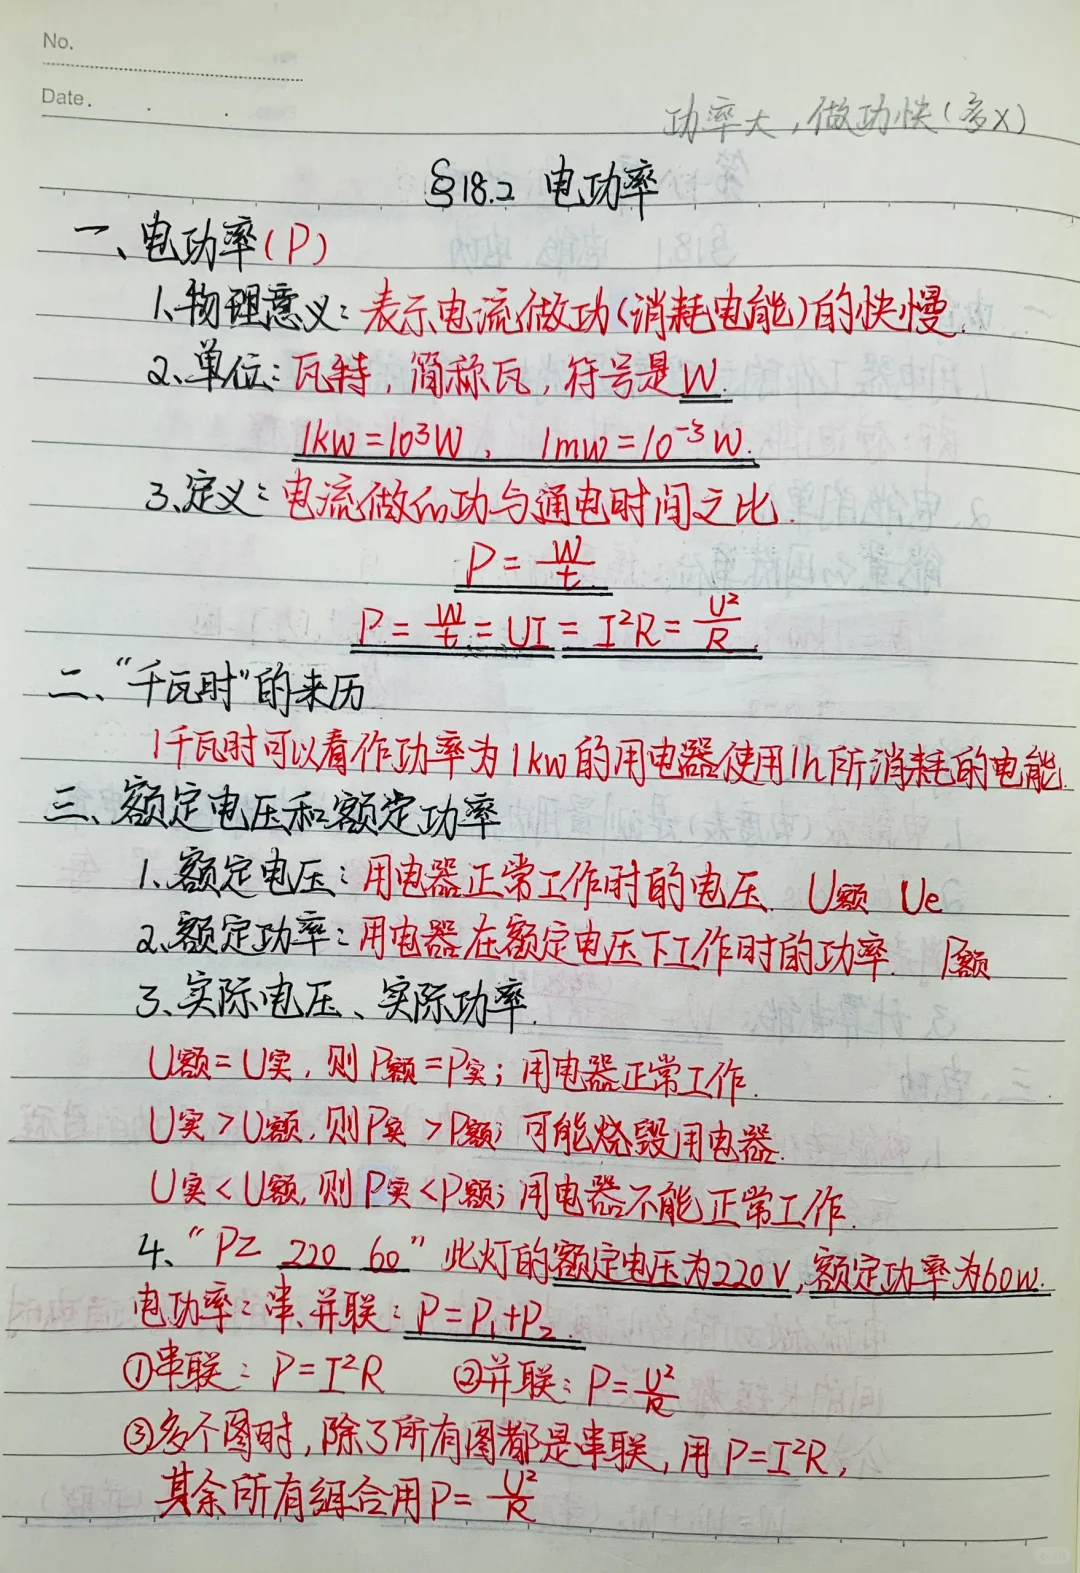 No.
Date.
功率大，做功快(多X)
§18.2 电功率
一、电功率(P)
1.物理意义：表示电流做功(消耗电能)的快慢.
2、单位：瓦特，简称瓦，符号是W.
1kw=10³W, 1mw=10⁻³W.
3、定义：电流做的功与通电时间之比.
P=W/t
P=W/t=UI=I²R=U²/R.
二、“千瓦时”的来历
1千瓦时可以看作功率为1kw的用电器使用1h所消耗的电能.
三、额定电压和额定功率
1、额定电压：用电器正常工作时的电压. U额 Ue
2、额定功率：用电器在额定电压下工作时的功率. P额
3、实际电压、实际功率.
U额=U实，则P额=P实；用电器正常工作.
U实>U额，则P实>P额；可能烧毁用电器.
U实<U额，则P实<P额；用电器不能正常工作.
4、“PZ 220 60”此灯的额定电压为220V，额定功率为60W.
电功率：串、并联：P=P₁+P₂.
①串联：P=I²R ②并联：P=U²/R
③多个图时，除了所有图都是串联，用P=I²R，
其余所有组合用P=U²/R